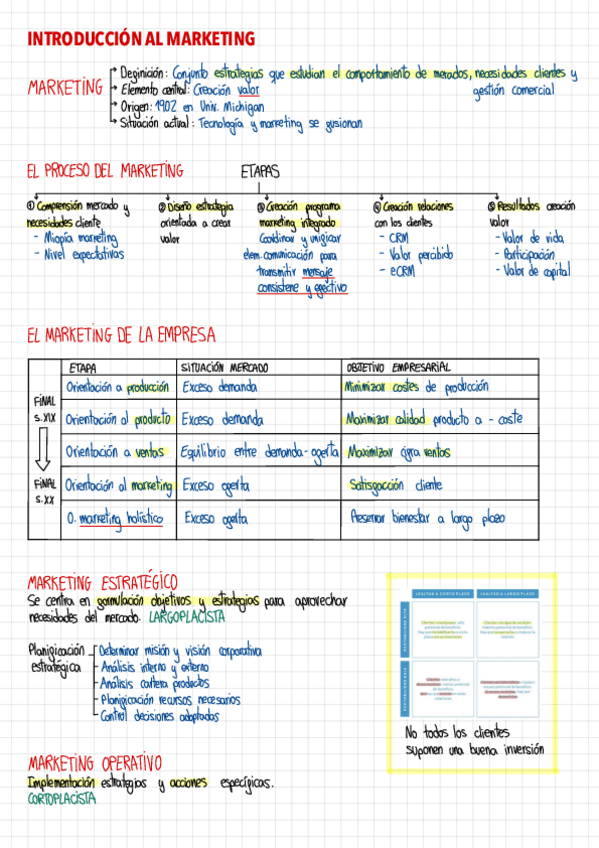 INTRODUCCIÓN AL MARKETING
MARKETING
Definición: Conjunto estrategias que estudian el comportamiento de mercados, necesidades clientes y
gestión comercial
Elemento central: Creación valor
Origen: 1902 en Univ. Michigan
Situación actual: Tecnología y marketing se fusionan
EL PROCESO DEL MARKETING
ETAPAS
① Comprensión mercado y
necesidades cliente
- Miopía marketing
- Nivel expectativas
② Diseño estrategia
orientada a crear
valor
③ Creación programa
marketing integrado
Coordinar y unificar
elem. comunicación para
transmitir mensaje
consistene y efectivo
④ Creación relaciones
con los clientes
- CRM
- Valor percibido
- eCRM
⑤ Resultados creación
valor
- Valor de vida
- Participación
- Valor de capital
EL MARKETING DE LA EMPRESA
ETAPA SITUACIÓN MERCADO OBJETIVO EMPRESARIAL
FINAL
S.XIX
Orientación a producción Exceso demanda Minimizar costes de producción
Orientación al producto Exceso demanda Maximizar calidad producto a - coste
Orientación a ventas Equilibrio entre demanda-oferta Maximizar cifra ventas
FINAL
S.XX
Orientación al marketing Exceso oferta Satisfacción cliente
O. marketing holístico Exceso oferta Preservar bienestar a largo plazo
MARKETING ESTRATÉGICO
Se centra en formulación objetivos y estrategias para aprovechar
necesidades del mercado. LARGOPLACISTA
Planificación
estratégica
Determinar misión y visión corporativa
Análisis interno y externo
Análisis cartera productos
Planificación recursos necesarios
Control decisiones adoptadas
LEALTAD A CORTO PLAZO LEALTAD A LARGO PLAZO
No todos los clientes
suponen una buena inversión
MARKETING OPERATIVO
Implementación estrategias y acciones específicas.
CORTOPLACISTA